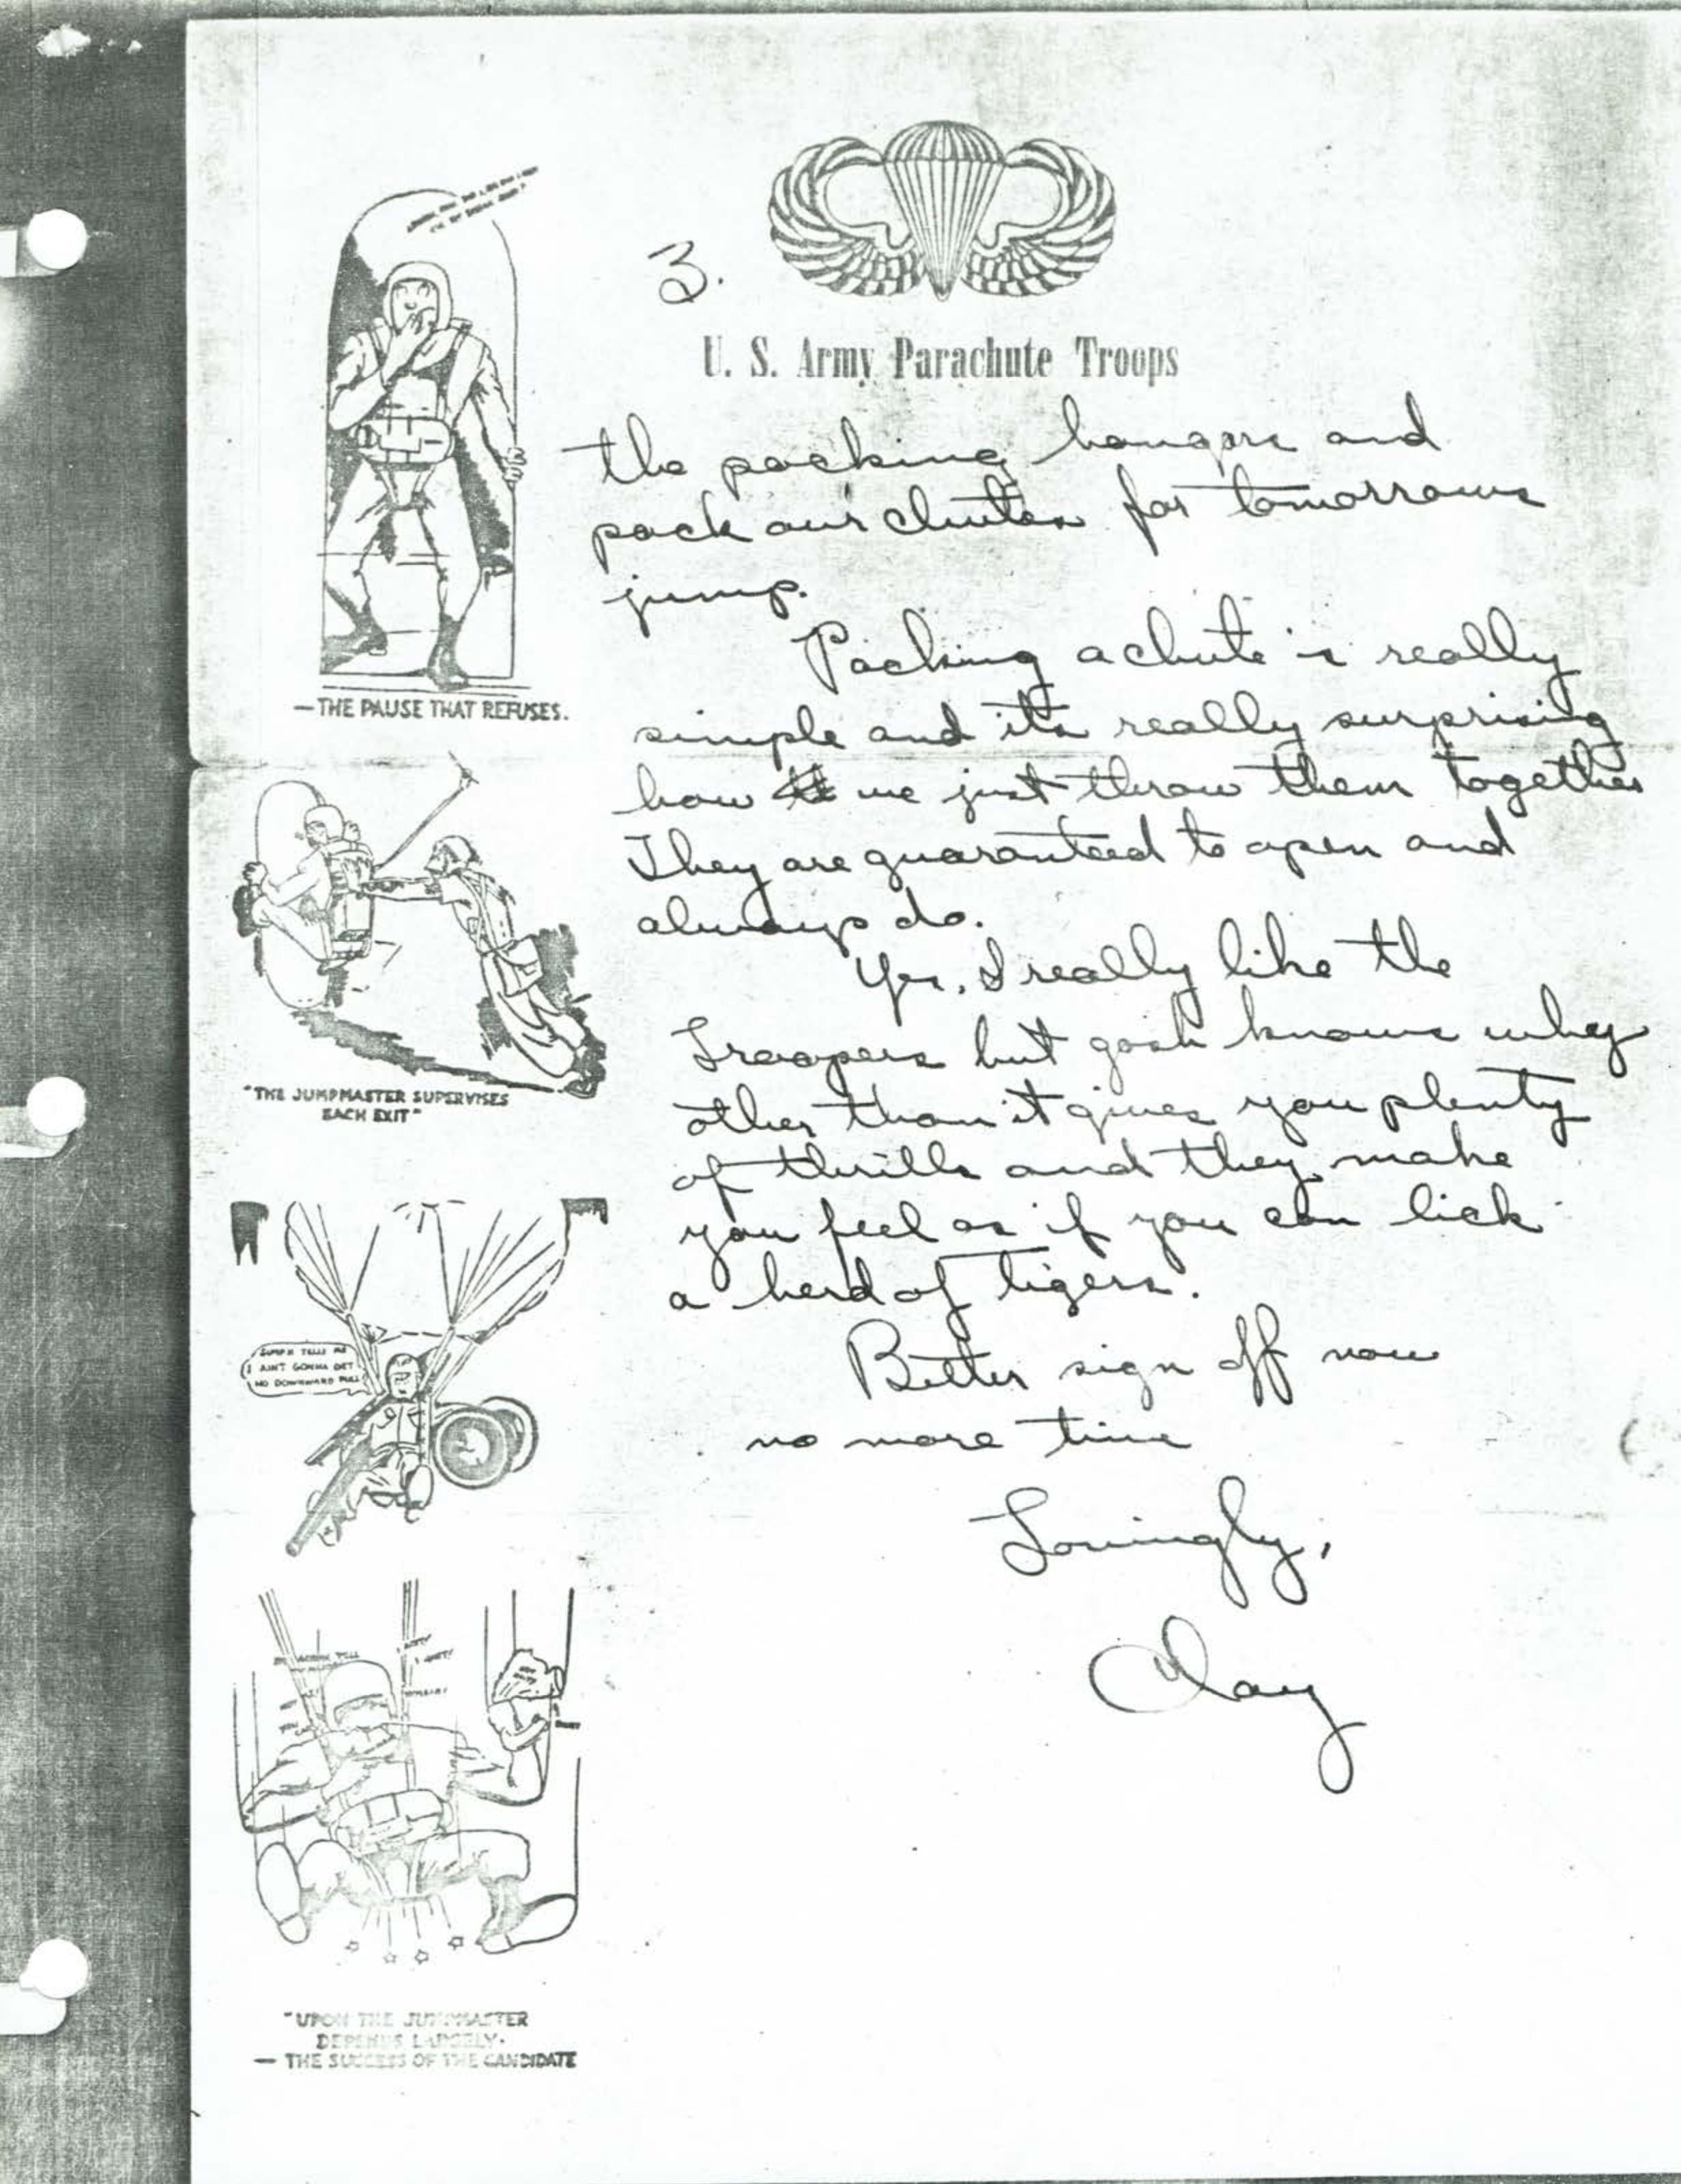 3.
U. S. Army Parachute Troops
the packing hangars and
pack our chutes for tomorrows
jump.
Packing a chute is really
simple and its really surprising
how we just throw them together
They are guaranteed to open and
always do.
Yes, I really like the
Troopers but gosh knows why
other than it gives you plenty
of thrills and they make
you feel as if you can lick
a herd of tigers.
Better sign off now
no more time
Lovingly,
Clay
—THE PAUSE THAT REFUSES.
"THE JUMPMASTER SUPERVISES
EACH EXIT"
TELLS ME
I AIN'T GONNA GET
NO DOWNWARD PULL
"UPON THE JUMPMASTER
DEPENDS LARGELY-
— THE SUCCESS OF THE CANDIDATE